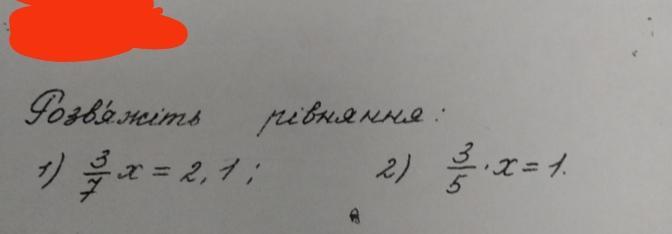 Розв'яжіть рівняння:
1) 3/7 x = 2,1; 2) 3/5 · x = 1.